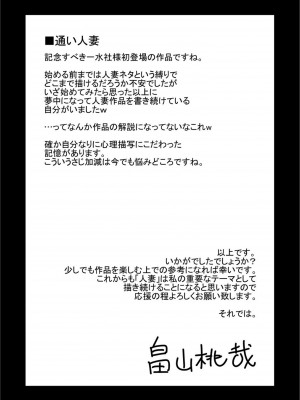 ■通い人妻
記念すべき一水社様初登場の作品ですね。
始める前までは人妻ネタという縛りで
どこまで描けるだろうか不安でしたが
いざ始めてみたら思った以上に
夢中になって人妻作品を書き続けている
自分がいましたｗ
…ってなんか作品の解説になってないなこれｗ
確か自分なりに心理描写にこだわった
記憶があります。
こういうさじ加減は今でも悩みどころですね。
以上です。
いかがでしたでしょうか？
少しでも作品を楽しむ上での参考になれば幸いです。
これからも「人妻」は私の重要なテーマとして
描き続けることになると思いますので
応援の程よろしくお願い致します。
それでは。
畠山桃哉